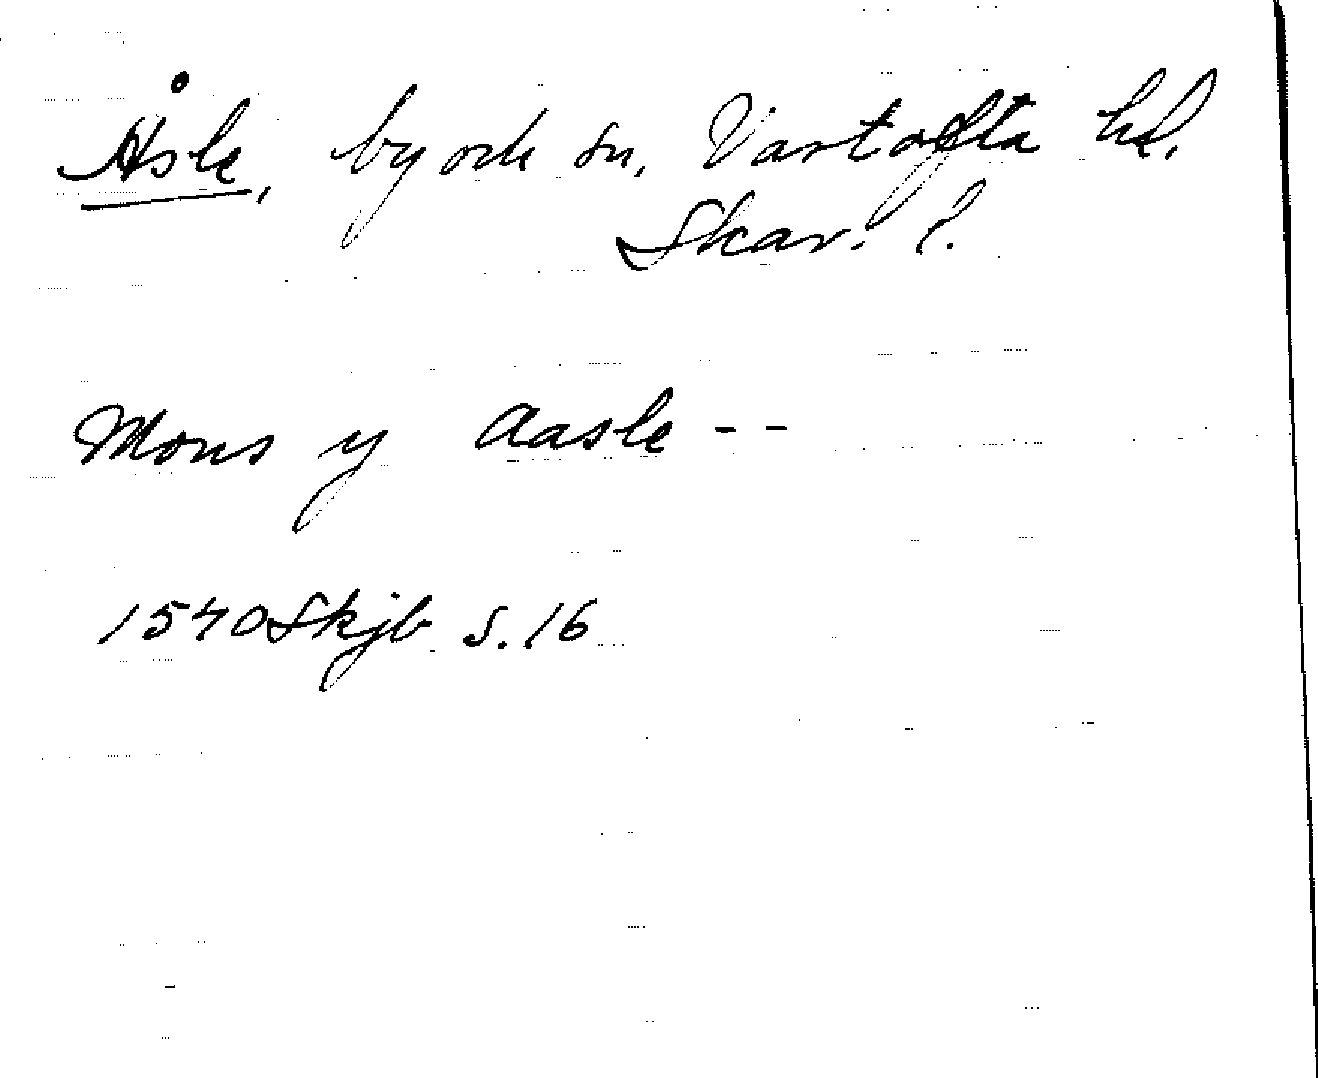 Åsle, by och sn, Vartofta hd,
Skar. l.
Mons y Aasle - -
1540 Skjb s. 16